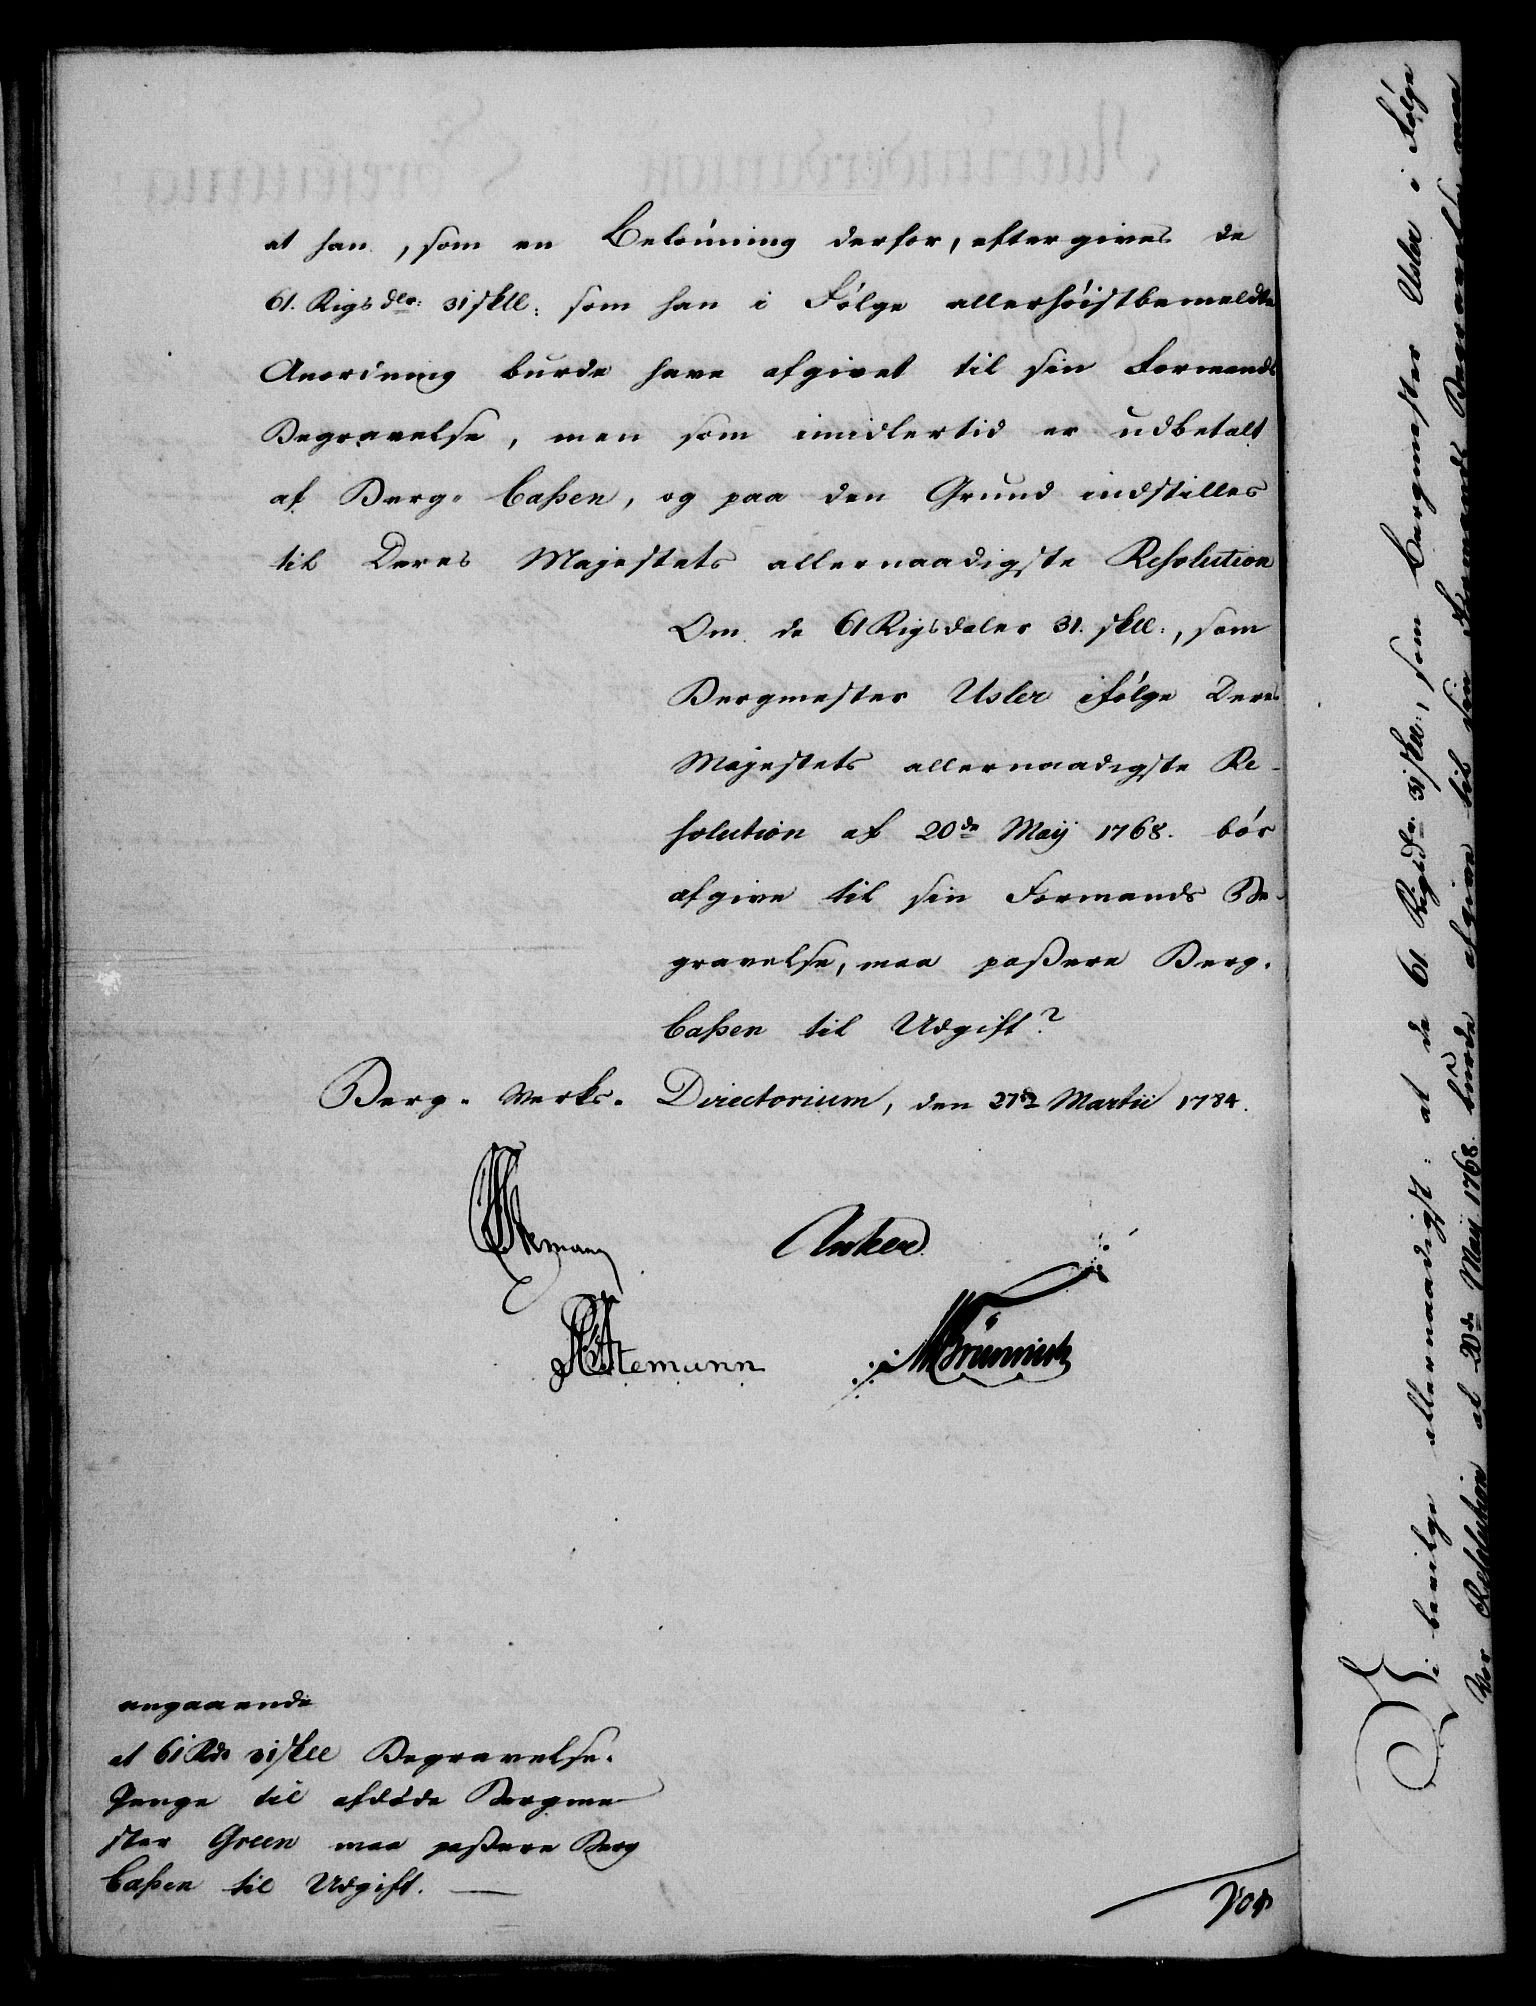 at han, som en Belønning derfor, eftergives de
61. Rigsdlr: 31 skll: som han i Følge allerhøistbemeldte
Anordning burde have afgivet til sin Formands
Begravelse, men som imidlertid er udbetalt
af Berg- Caßen, og paa den Grund indstilles
til Deres Majestets allernaadigste Resolution
Om de 61 Rigsdaler 31. skll:, som
Bergmester Usler ifølge Deres
Majestets allernaadigste Re-
solution af 20de Maij 1768. bør
afgive til sin Formands Be-
gravelse, maa paßere Berg-
Caßen til Udgift?
Berg- Verks- Directorium, den 27de Martii 1784.
Stemann
Anker.
Stemann
MBrünnich
angaaende
at 61 Rdr 31 skll Begravelse-
Penge til afdøde Bergme-
ster Green maa paßere Berg
Caßen til Udgift.
Vor
Vi bevilge allernaadigst: at de 61 Rigsdr. 31 skll:, som Bergmester Usler i Følge
Vor Resolution af 20de Maij 1768. burde afgive til sin Formands Begravelse, maa